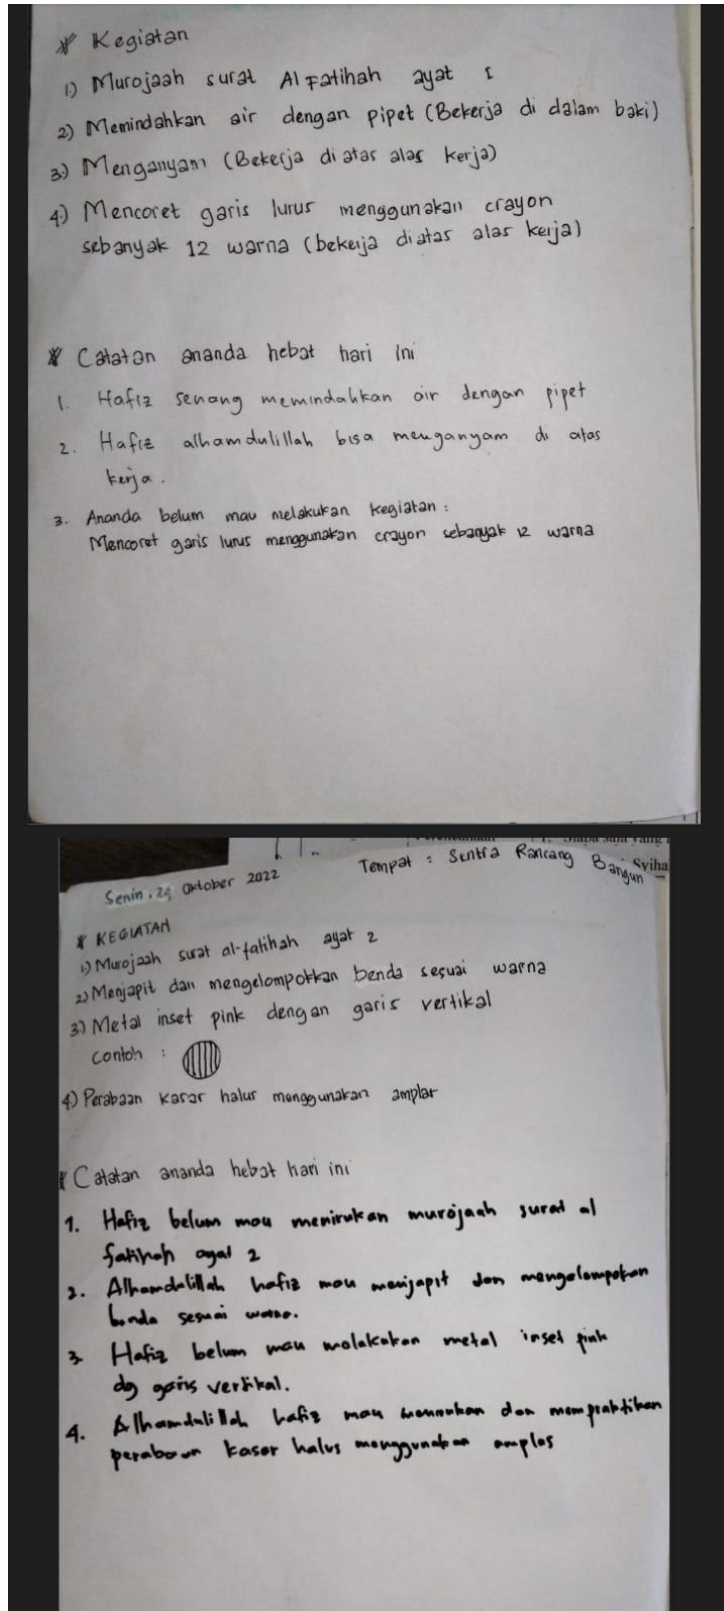 * Kegiatan
1) Murojaah surat Al Fatihah ayat 1
2) Memindahkan air dengan pipet (Bekerja di dalam baki)
3) Menganyam (Bekerja diatas alas kerja)
4) Mencoret garis lurus menggunakan crayon
sebanyak 12 warna (bekerja diatas alas kerja)
* Catatan ananda hebat hari ini
1. Hafiz senang memindahkan air dengan pipet
2. Hafiz alhamdulillah bisa menganyam di atas
kerja.
3. Ananda belum mau melakukan kegiatan :
Mencoret garis lurus menggunakan crayon sebanyak 12 warna
Senin, 24 Oktober 2022
Tempat : Sentra Rancang Bangun
Syiha
* KEGIATAN
1) Murojaah surat al-fatihah ayat 2
2) Menjapit dan mengelompokkan benda sesuai warna
3) Metal inset pink dengan garis vertikal
contoh :
4) Perabaan kasar halus menggunakan amplas
* Catatan ananda hebat hari ini
1. Hafiz belum mau menirukan murojaah surat al
fatihah ayat 2
2. Alhamdulillah hafiz mau menjapit dan mengelompokan
benda sesuai warna.
3 Hafiz belum mau melakukan metal inset pink
dg garis vertikal.
4. Alhamdulillah hafiz mau menirukan dan mempraktikan
perabaan kasar halus menggunakan amplas